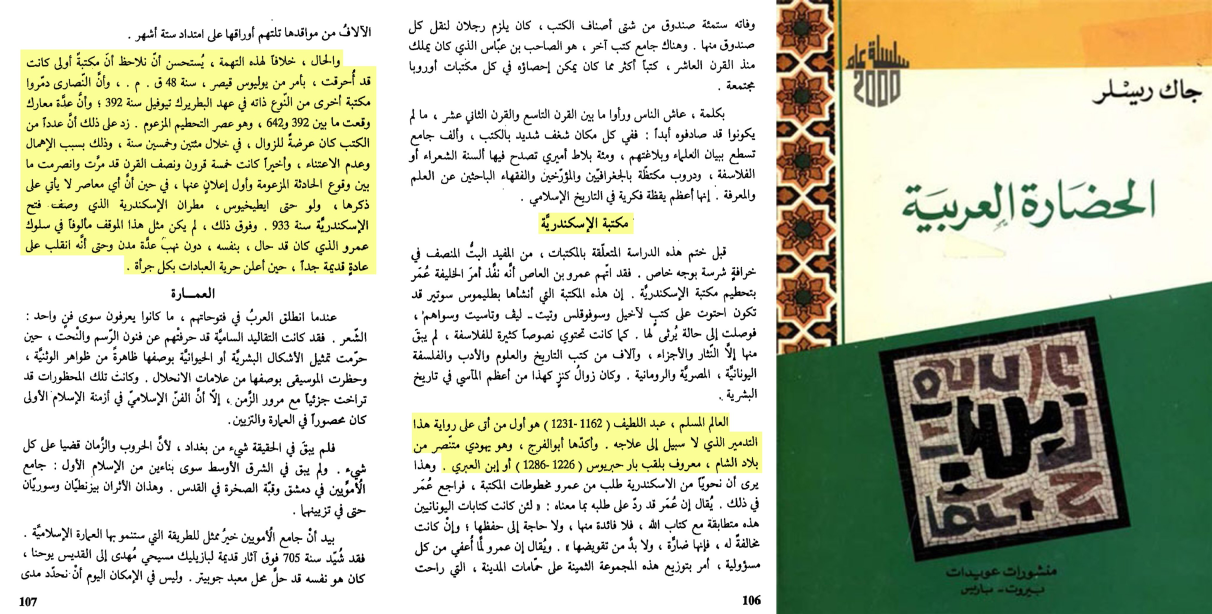 سلسلة عام
2000
جاك ريسلر
الحضارة العربية
منشورات عويدات
بيروت - باريس
وفاته ستمئة صندوق من شتى أصناف الكتب ، كان يلزم رجلان لنقل كل
صندوق منها . وهناك جامع كتب آخر ، هو الصاحب بن عبّاس الذي كان يملك
منذ القرن العاشر ، كتباً أكثر مما كان يمكن إحصاؤه في كل مكتبات أوروبا
مجتمعة .
بكلمة ، عاش الناس ورأوا ما بين القرن التاسع والقرن الثاني عشر ، ما لم
يكونوا قد صادفوه أبداً : ففي كل مكان شغف شديد بالكتب ، وألف جامع
تسطع ببيان العلماء وبلاغتهم ، ومئة بلاط أميري تصدح فيها ألسنة الشعراء أو
الفلاسفة ، ودروب مكتظّة بالجغرافيّين والمؤرّخين والفقهاء الباحثين عن العلم
والمعرفة . إنها أعظم يقظة فكرية في التاريخ الإسلامي .
مكتبة الإسكندريَّة
قبل ختم هذه الدراسة المتعلّقة بالمكتبات ، من المفيد البتُّ المنصف في
خرافةٍ شرسة بوجه خاص . فقد اتّهم عمرو بن العاص أنَّه نفَّذ أمرَ الخليفة عُمَر
بتحطيم مكتبة الإسكندريَّة . إن هذه المكتبة التي أنشأها بطليموس سوتير قد
تكون احتوت على كتبٍ لآخيل وسوفوقلس وتيت - ليڤ وتاسيت وسواهم ،
فوصلت إلى حالة يُرثى لها . كما كانت تحتوي نصوصاً كثيرة للفلاسفة ، لم يبقَ
منها إلَّا النُّثار والأجزاء ، وآلاف من كتب التاريخ والعلوم والأدب والفلسفة
اليونانيَّة ، المصريَّة والرومانية . وكان زوالُ كنزٍ كهذا من أعظم المآسي في تاريخ
البشرية .
العالم المسلم ، عبد اللطيف ( 1162 - 1231 ) هو أول من أتى على رواية هذا
التدمير الذي لا سبيل إلى علاجه . وأكدّها أبوالفرج ، وهو يهودي متنّصر من
بلاد الشام ، معروف بلقب بار حبريوس ( 1226 - 1286 ) أو إبن العبري . وهذا
يرى أن نحويّاً من الاسكندرية طلب من عمرو مخطوطات المكتبة ، فراجع عُمَر
في ذلك . يُقال إن عُمَر قد ردّ على طلبه بما معناه : « لئن كانت كتابات اليونانيين
هذه متطابقة مع كتاب الله ، فلا فائدة منها ، ولا حاجة إلى حفظها ؛ وإنْ كانت
مخالفةً له ، فإنها ضارَّة ، ولا بدَّ من تقويضها » . ويُقال إن عمرو لمَّا أُعفي من كل
مسؤولية ، أمر بتوزيع هذه المجموعة الثمينة على حمّامات المدينة ، التي راحت
106
الآلافُ من مواقدها تلتهم أوراقها على امتداد ستة أشهر .
والحال ، خلافاً لهذه التهمة ، يُستحسن أنْ نلاحظ أنّ مكتبةً أولى كانت
قد أُحرقت ، بأمر من يوليوس قيصر ، سنة 48 ق . م . ، وأنَّ النّصارى دمّروا
مكتبة أخرى من النّوع ذاته في عهد البطريرك تيوفيل سنة 392 ؛ وأنَّ عدَّة معارك
وقعت ما بين 392 و642 ، وهو عصر التحطيم المزعوم . زد على ذلك أنَّ عدداً من
الكتب كان عرضةً للزوال ، في خلال مئتين وخمسين سنة ، وذلك بسبب الإهمال
وعدم الاعتناء ، وأخيراً كانت خمسة قرون ونصف القرن قد مرَّت وانصرمت ما
بين وقوع الحادثة المزعومة وأول إعلانٍ عنها ، في حين أنَّ أي معاصر لا يأتي على
ذكرها ، ولو حتى ايطيخيوس ، مطران الإسكندرية الذي وصف فتح
الإسكندريَّة سنة 933 . وفوق ذلك ، لم يكن مثل هذا الموقف مألوفاً في سلوك
عمرو الذي كان قد حال ، بنفسه ، دون نهب عدَّة مدن وحتى أنَّه انقلب على
عادةٍ قديمة جداً ، حين أعلن حرية العبادات بكل جرأة .
العمـــارة
عندما انطلق العربُ في فتوحاتهم ، ما كانوا يعرفون سوى فنٍ واحد :
الشّعر . فقد كانت التقاليد الساميَّة قد حرفتْهم عن فنون الرّسم والنّحت ، حين
حرّمت تمثيل الأشكال البشريَّة أو الحيوانيَّة بوصفها ظاهرةً من ظواهر الوثنيَّة ،
وحظرت الموسيقى بوصفها من علامات الانحلال . وكانت تلك المحظورات قد
تراخت جزئياً مع مرور الزَّمن ، إلَّا أنَّ الفنّ الإسلاميّ في أزمنة الإسلام الأولى
كان محصوراً في العمارة والتزيين.
فلم يبقَ في الحقيقة شيء من بغداد ، لأنَّ الحروب والزَّمان قضيا على كل
شيء . ولم يبق في الشرق الأوسط سوى بناءين من الإسلام الأول : جامع
الأُمويّين في دمشق وقبَّة الصخرة في القدس . وهذان الأثران بيزنطيّان وسوريّان
حتى في تزيينهما .
بيد أنَّ جامع الأُمويين خيرُ ممثل للطريقة التي ستنمو بها العمارة الإسلاميَّة .
فقد شُيِّد سنة 705 فوق آثار قديمة لبازيليك مسيحي مُهدى إلى القديس يوحنا ،
كان هو نفسه قد حلَّ محل معبد جوبيتر . وليس في الإمكان اليوم أنْ نحدّد مدى
107